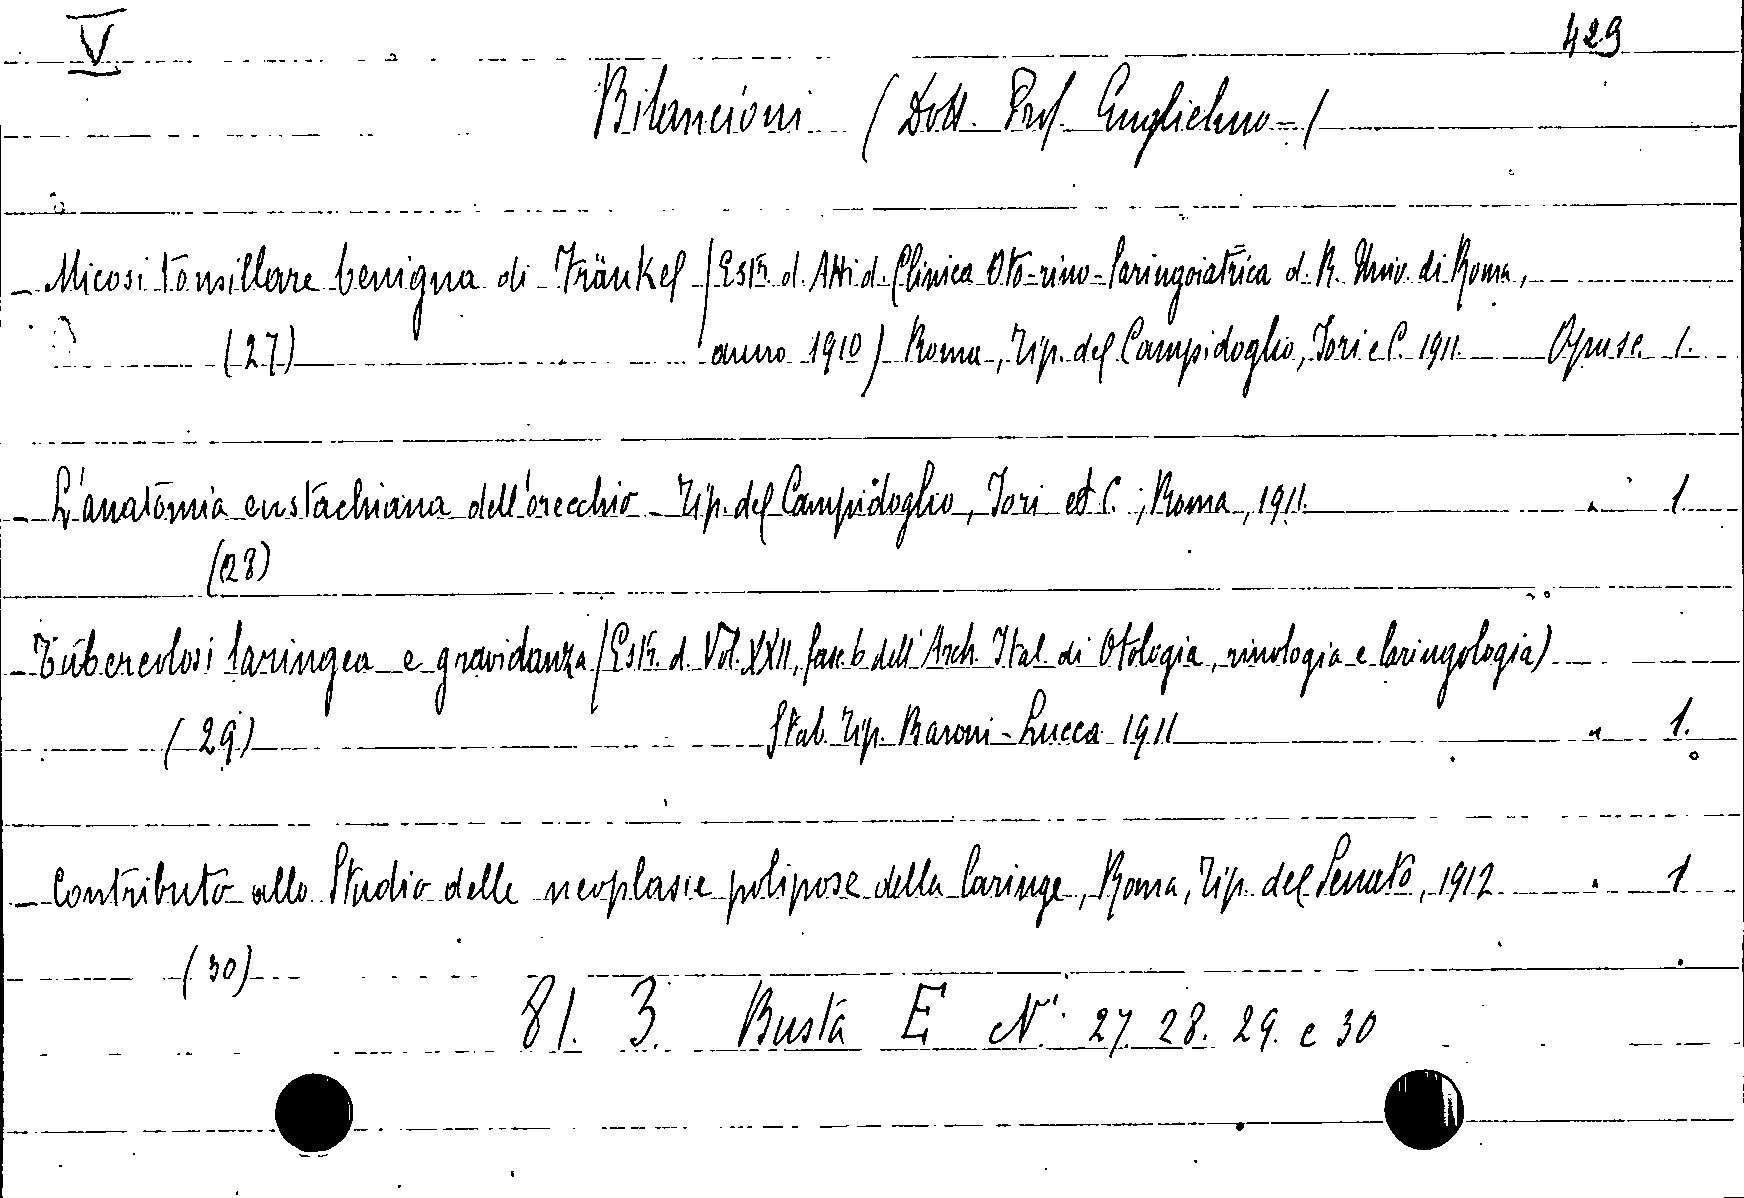 V 429
Bilancioni (Dott. Prof. Guglielmo-)
- Micosi tonsillare benigna di Fränkel (Estr. d. Atti d. Clinica Oto-rino-laringoiatrica d. R. Univ. di Roma,
(27) anno 1910) Roma, Tip. del Campidoglio, Tori e C. 1911. Opusc. 1.
- L'anatomia eustachiana dell'orecchio - Tip. del Campidoglio, Tori et C.; Roma, 1911. " 1
(28)
- Tubercolosi laringea e gravidanza (Estr. d. Vol. XXII, fasc. 6 dell'Arch. Ital. di Otologia, rinologia e laringologia)
(29) Stab. Tip. Baroni - Lucca 1911 " 1.
- Contributo allo Studio delle neoplasie polipose della laringe, Roma, Tip. del Senato, 1912 " 1
(30)
81. 3. Busta E N.i 27. 28. 29. e 30